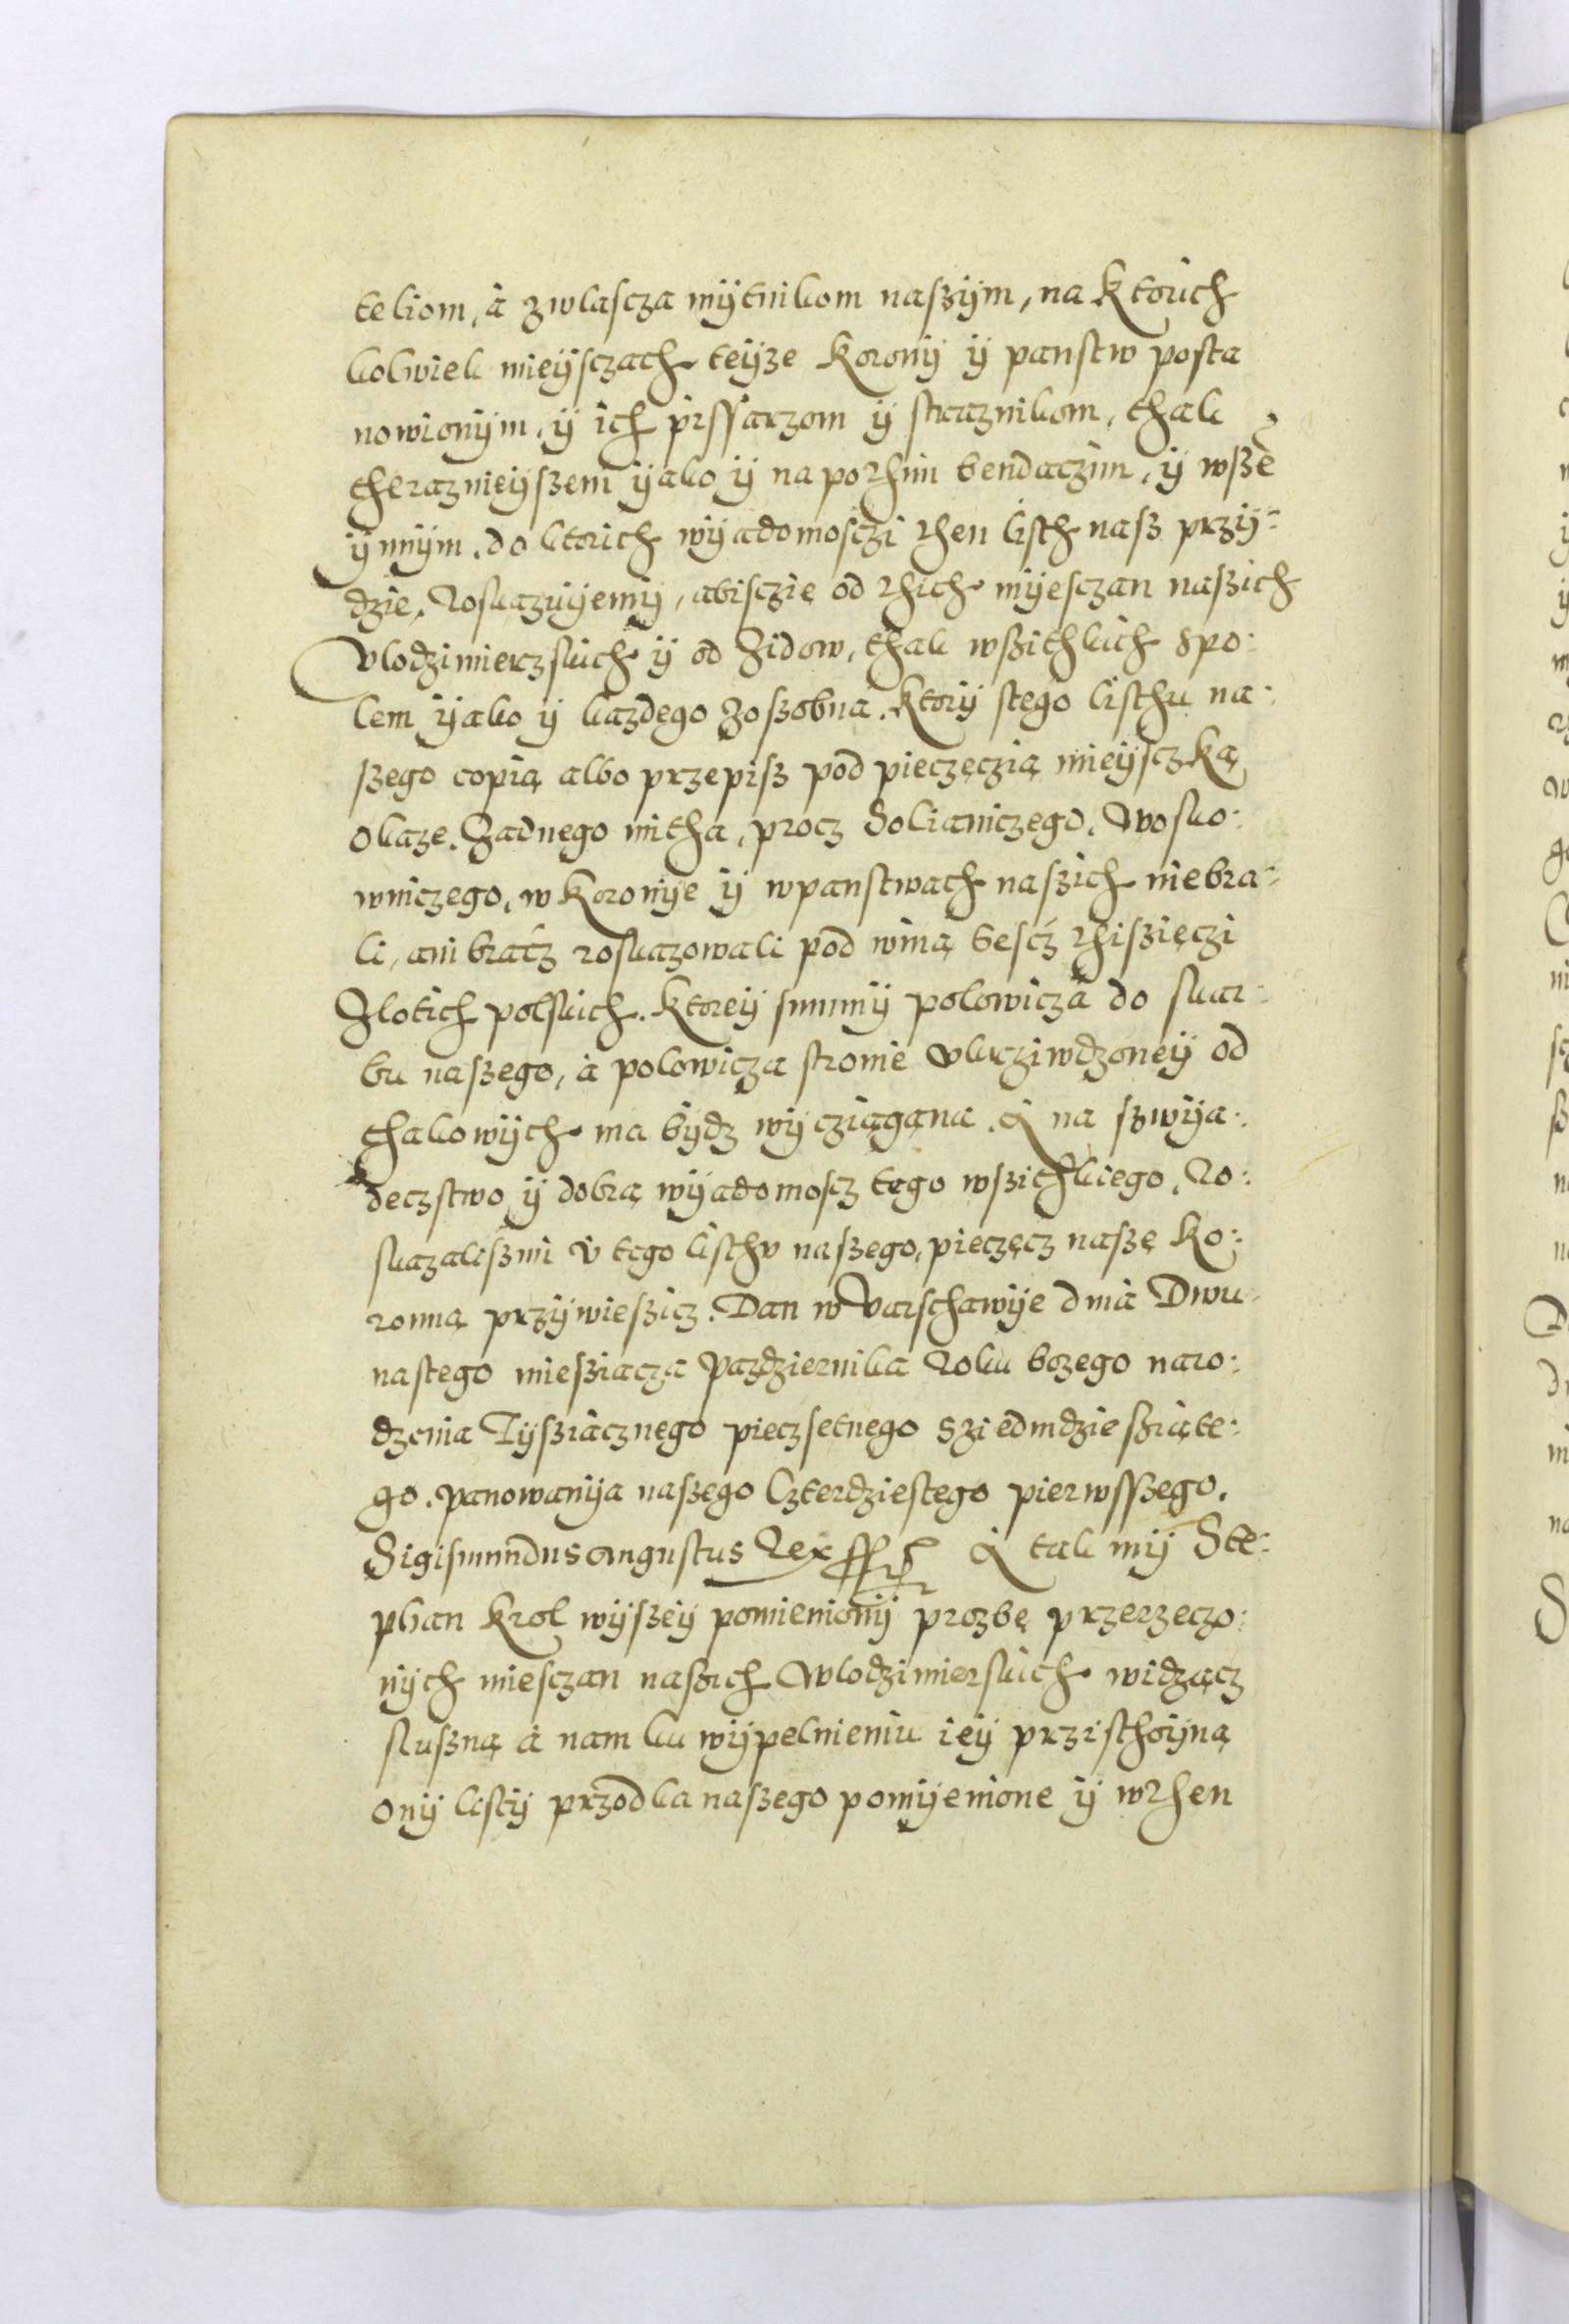 teliom, à zwlascza mÿtnikom naszÿm, na Ktorich
kolwiek mieÿsczach teÿze Koronÿ ÿ panstw posta
nowionÿm, ÿ ich pissarzom ÿ straznikom, thak
theraznieÿszem ÿako ÿ na pothim bendaczim, ÿ wsze
ÿnnÿm, do ktorich wÿadomosczi then listh nasz przÿ:
dzie, Roskazuÿemÿ, abisczie od thich mÿesczan naszich
Vlodzimierzskich ÿ od Zidow, thak wszithkich spo:
lem ÿako ÿ kazdego zoszobna, Ktorÿ stego listhu na:
szego copią albo przepisz pod pieczęczią mieÿsczKą
okaze. Zadnego mitha, procz Solianiczego, Wosko:
wniczego, w Koronÿe ÿ wpanstwach naszich niebra:
li, ani bracz roskazowali pod winą sescz thiszięczi
Zlotich polskich. Ktoreÿ summÿ polowicza do skar:
bu naszego, à polowicza stronie vkrziwdzoneÿ od
thakowÿch ma bÿdz wÿcziągana. A na szwÿa:
deczstwo ÿ dobrą wÿadomoscz tego wszithkiego, Ro:
skazaliszmi v tego listhv naszego, pieczęcz naszę Ko:
ronną przÿwieszicz. Dan w Varschawÿe dnia Dwu:
nastego miesziacza Pazdziernika Roku bozego naro:
dzenia Tÿsziącznego pieczsetnego Sziedmdziesziąte:
go. panowanÿa naszego Czterdziestego pierwsszego.
Sigismundus Augustus Rex A tak mÿ Ste:
phan Krol wÿszeÿ pomienionÿ prozbę przerzeczo:
nÿch miesczan naszich Wlodzimierskich widzącz
sluszną à nam ku wÿpelnieniu ieÿ przisthoÿną
onÿ listÿ przodka naszego pomÿenione ÿ wthen